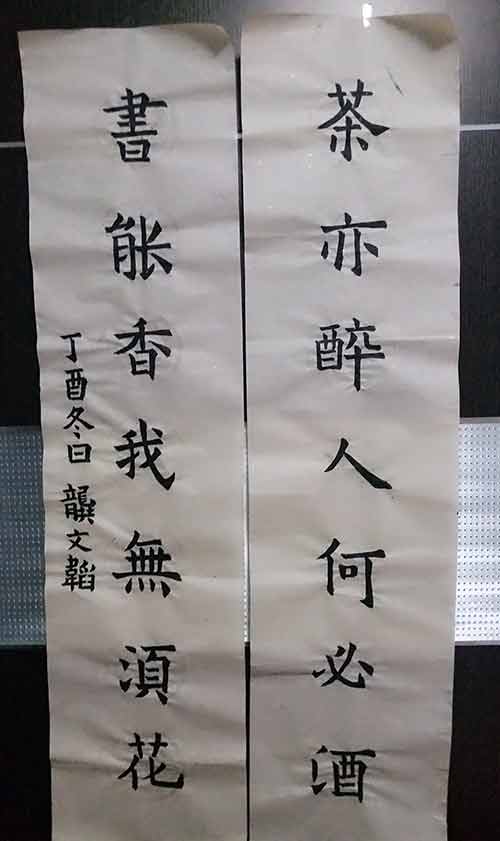 茶亦醉人何必酒
書能香我無湏花
丁酉冬日 龔文韜